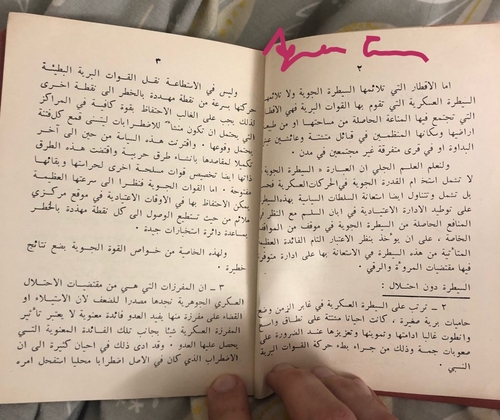 ٢
اما الاقطار التي تلائمها السيطرة الجوية ولا تلائم
السيطرة العسكرية التي تقوم بها القوات البرية فهي الاقطار
التي تجتمع فيها المناعة الحاصلة من مساحتها او من
اراضيها وسكانها المنظمين في قبائل متشتتة وعائشين
البداوة او في قرى متفرقة غير مجتمعين في مدن .
وليعلم العلم الجلي ان العبارة « السيطرة الجوية
لا تشمل استخدام القدرة الجوية في الحركات العسكرية
بل تشمل وتتناول ايضا استعانة السلطات السياسية بهذه
على توطيد الادارة الاعتيادية في ابان السلم مع النظر
المنافع الحاصلة من السيطرة الجوية في موقف من
الخاصة ، على ان يؤخذ بنظر الاعتبار التام الفائدة
المتأتية من هذه السيطرة في الاستعانة بها على ادارة
فيها مقتضيات المروءة والرقي .
السيطرة دون احتلال :
٢ – ترتب على السيطرة العسكرية في غابر الزمن وضع
حاميات برية صغيرة ، كانت احيانا مشتتة على نطاق واسع
وانطوت غالبا ادامتها وتموينها وتعزيزها عند الضرورة على
صعوبات جمة وذلك من جراء بطء حركة القوات البرية
النسبي .
٣
وليس في الاستطاعة نقل القوات البرية البطيئة
حركتها بسرعة من نقطة مهددة بالخطر الى نقطة اخرى
لذلك يجب على الغالب الاحتفاظ بقوة كافية في المراكز
التي يحتمل ان تكون منشأ للاضطرابات ليتسنى قمع كل فتنة
يحتمل وقوعها . واقترنت هذه السياسة من حين الى آخر
تكميلا لمقاصدها بانشاء طرق حربية واقتضت هذه الطرق
ذاتها ايضا تخصيص قوات مسلحة اخرى لحراستها وبقائها
مفتوحة . اما القوات الجوية فنظرا الى سرعتها العظيمة
يمكن الاحتفاظ بها في الاوقات الاعتيادية في موقع مركزي
ملائم من حيث تستطيع الوصول الى كل نقطة مهددة بالخطر
بمساعدة دائرة استخبارات جيدة .
ولهذه الخاصية من خواص القوة الجوية بضع نتائج
خطيرة .
٣ – ان المفرزات التي هي من مقتضيات الاحتلال
العسكري الجوهرية تجدها مصدرا للضعف لان الاستيلاء او
القضاء على مفرزة منها يفيد العدو فائدة معنوية لا يعتبر تأثير
المفرزة العسكرية شيئا بجانب تلك الفائدة المعنوية التي
يحصل عليها العدو . وقد ادى ذلك في احيان كثيرة الى ان
الاضطراب الذي كان في الاصل اضطرابا محليا استفحل امره